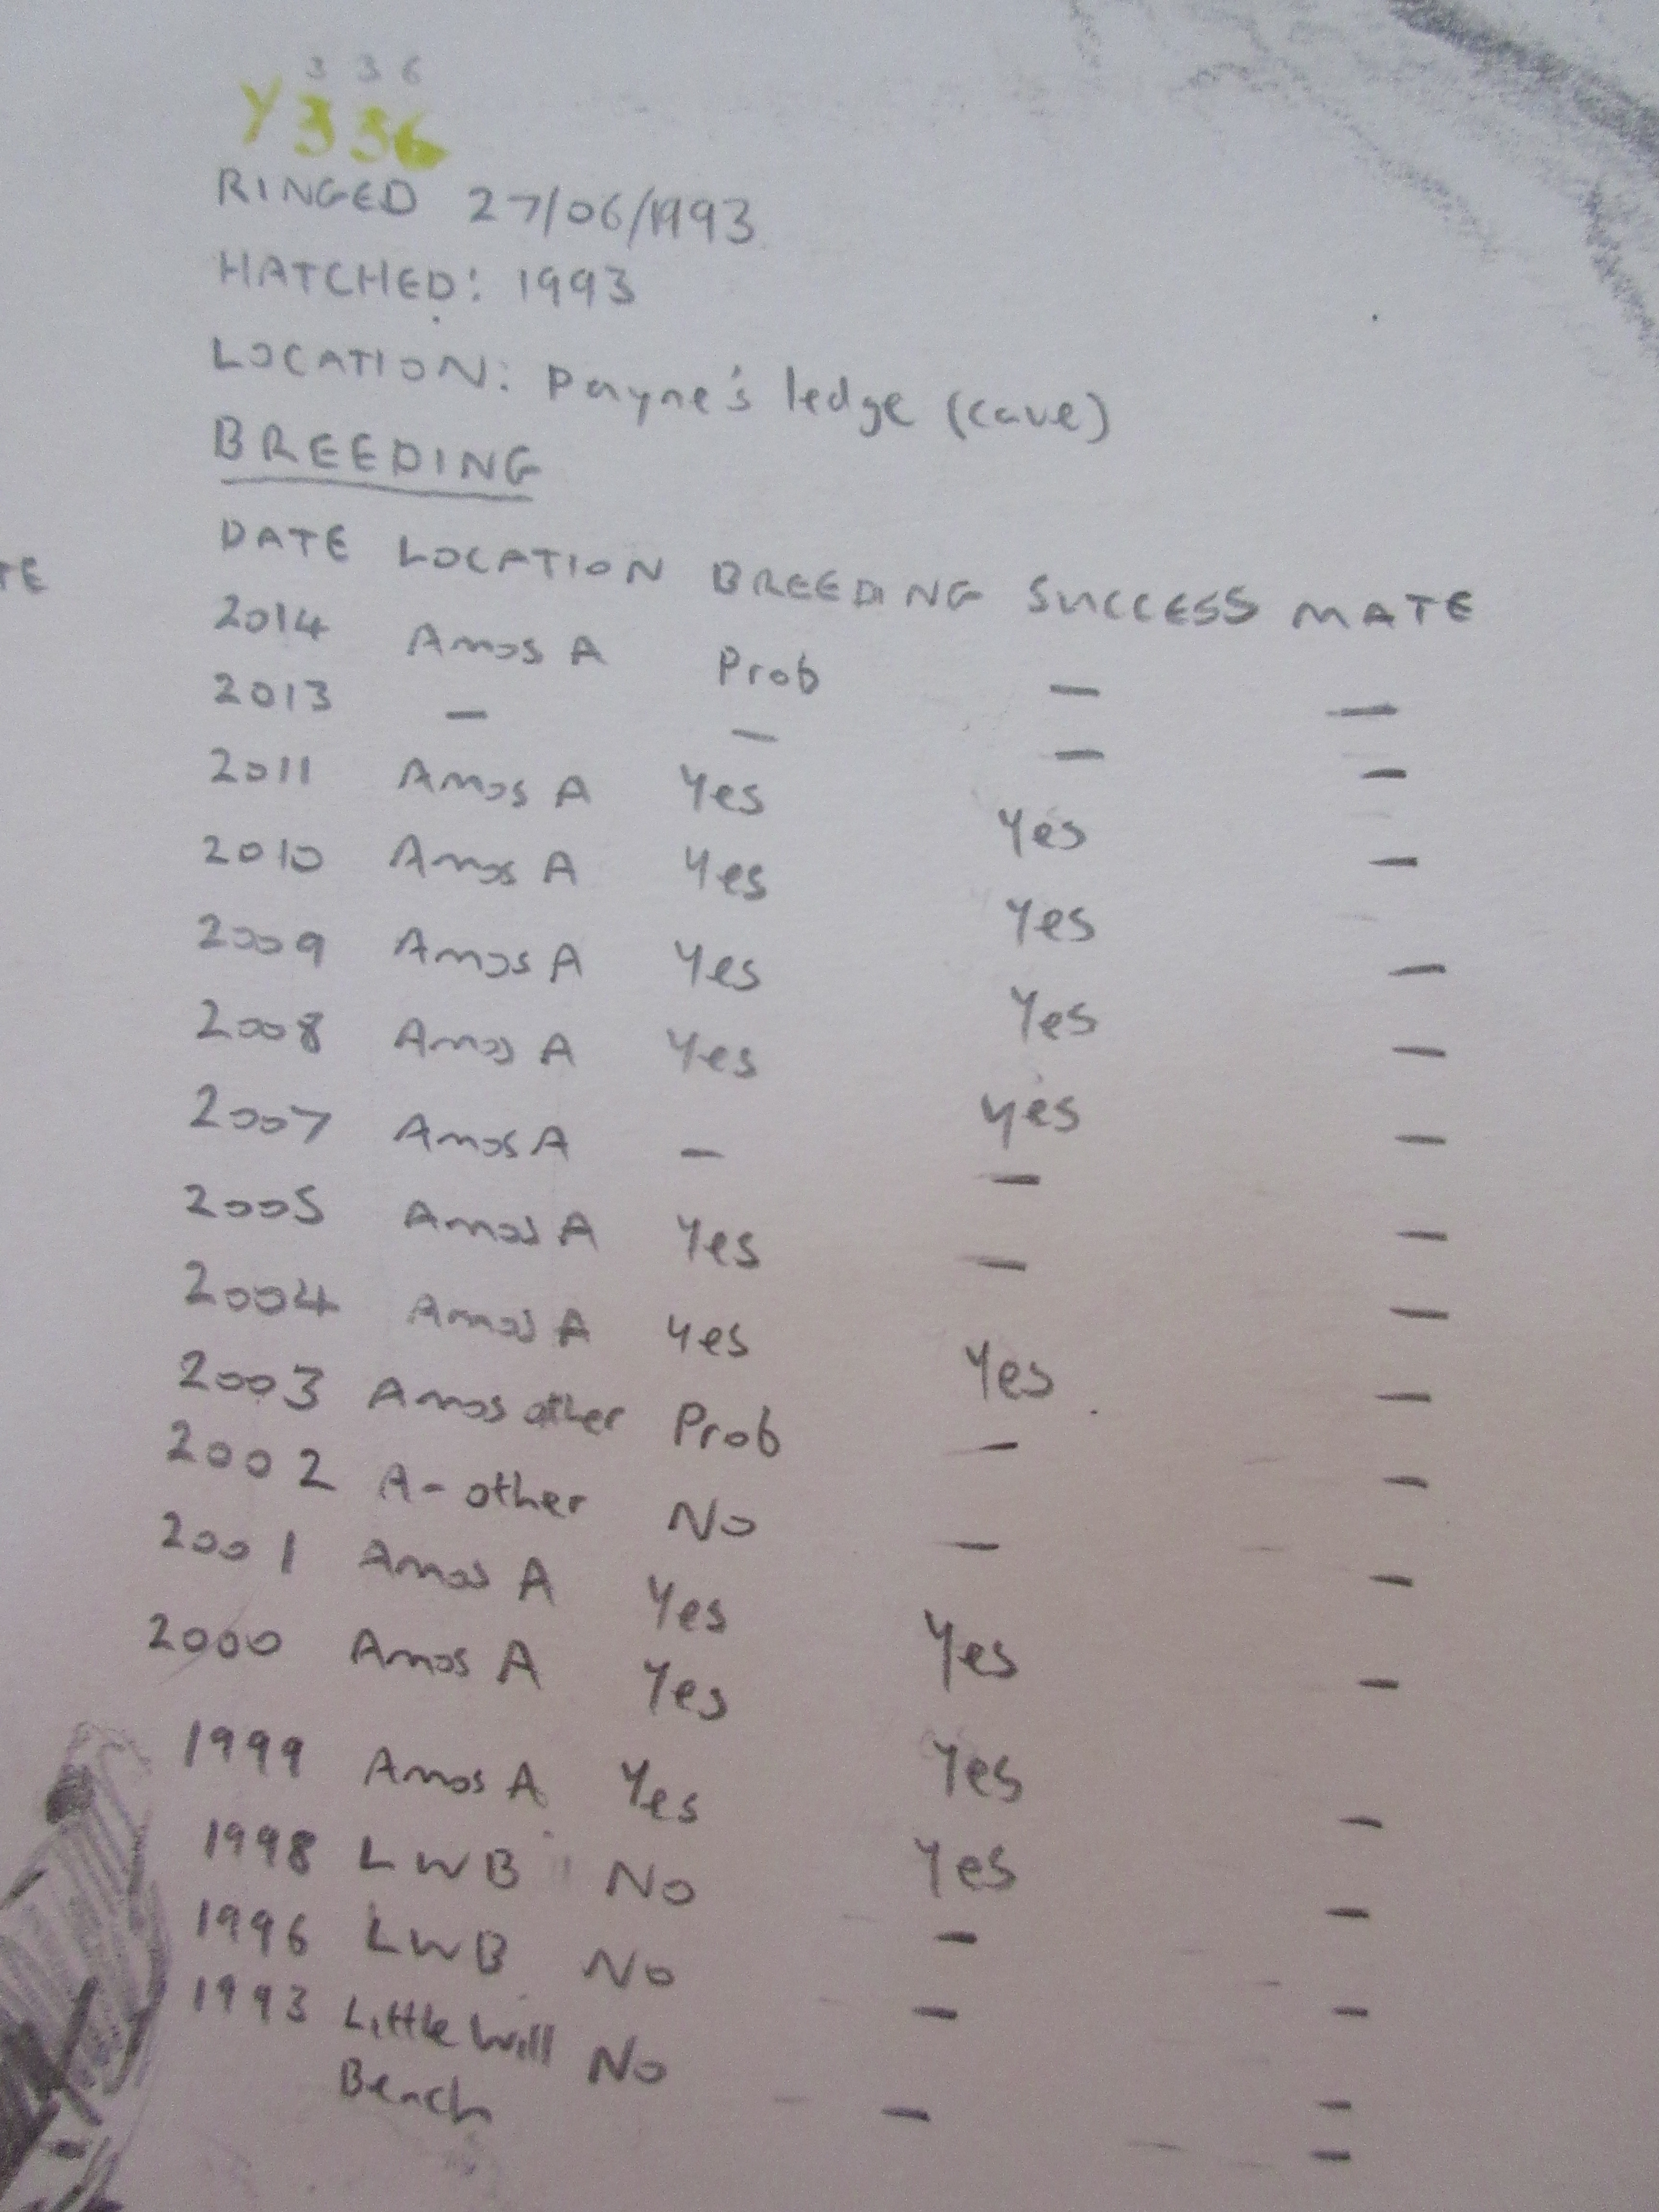 3 3 6
Y336
RINGED 27/06/1993
HATCHED: 1993
LOCATION: Payne's ledge (cave)
BREEDING
TE
DATE LOCATION BREEDING SUCCESS MATE
2014 Amos A Prob — —
2013 — — — —
2011 Amos A Yes Yes —
2010 Amos A Yes Yes —
2009 Amos A Yes Yes —
2008 Amos A Yes Yes —
2007 Amos A — — —
2005 Amos A Yes — —
2004 Amos A Yes Yes —
2003 Amos other Prob — —
2002 A- other No — —
2001 Amos A Yes Yes —
2000 Amos A Yes Yes —
1999 Amos A Yes Yes —
1998 LWB No — —
1996 LWB No — —
1993 Little Will No — —
Bench